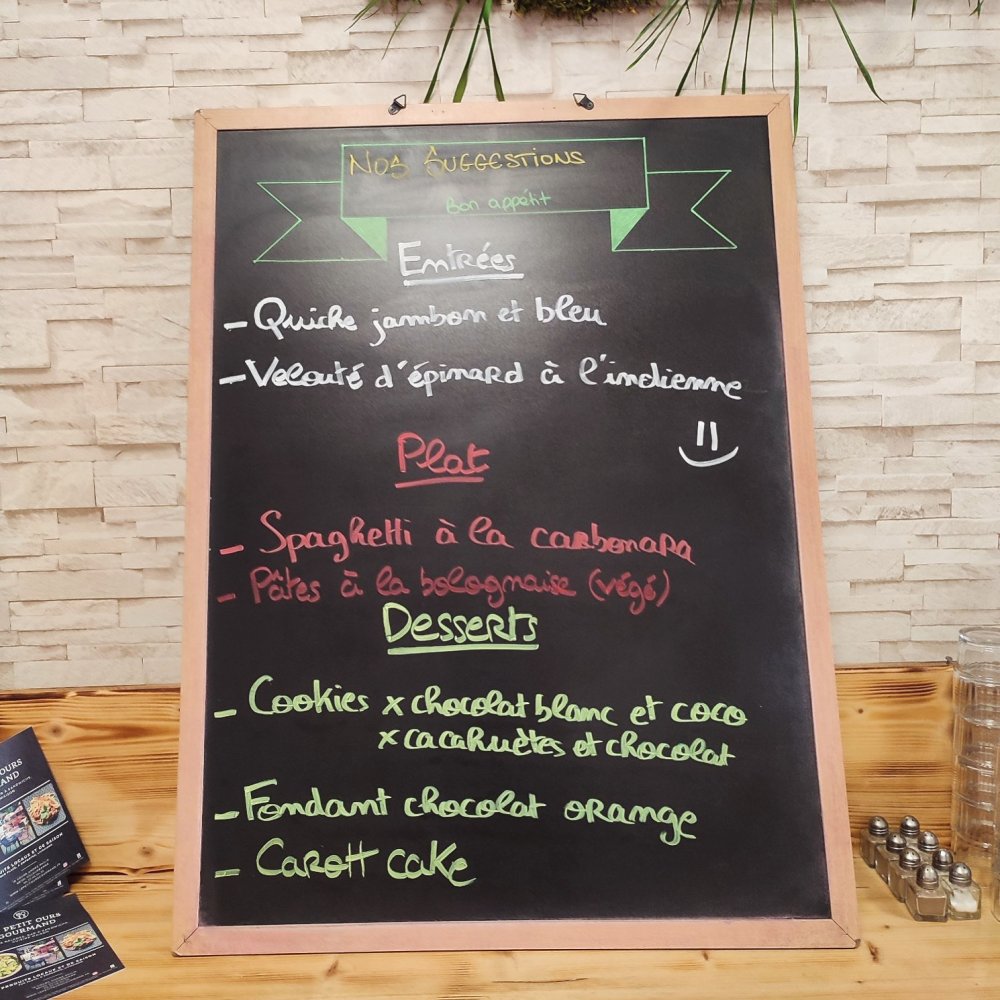 Nos Suggestions
Bon appétit
Entrées
- Quiche jambon et bleu
- Velouté d'épinard à l'indienne
Plat
- Spaghetti à la carbonara
- Pâtes à la bolognaise (végé)
Desserts
- Cookies x chocolat blanc et coco
x cacahuètes et chocolat
- Fondant chocolat orange
- Carott cake
OURS
AND
PRODUITS LOCAUX ET DE SAISON
PETIT OURS
GOURMAND
PRODUITS LOCAUX ET DE SAISON